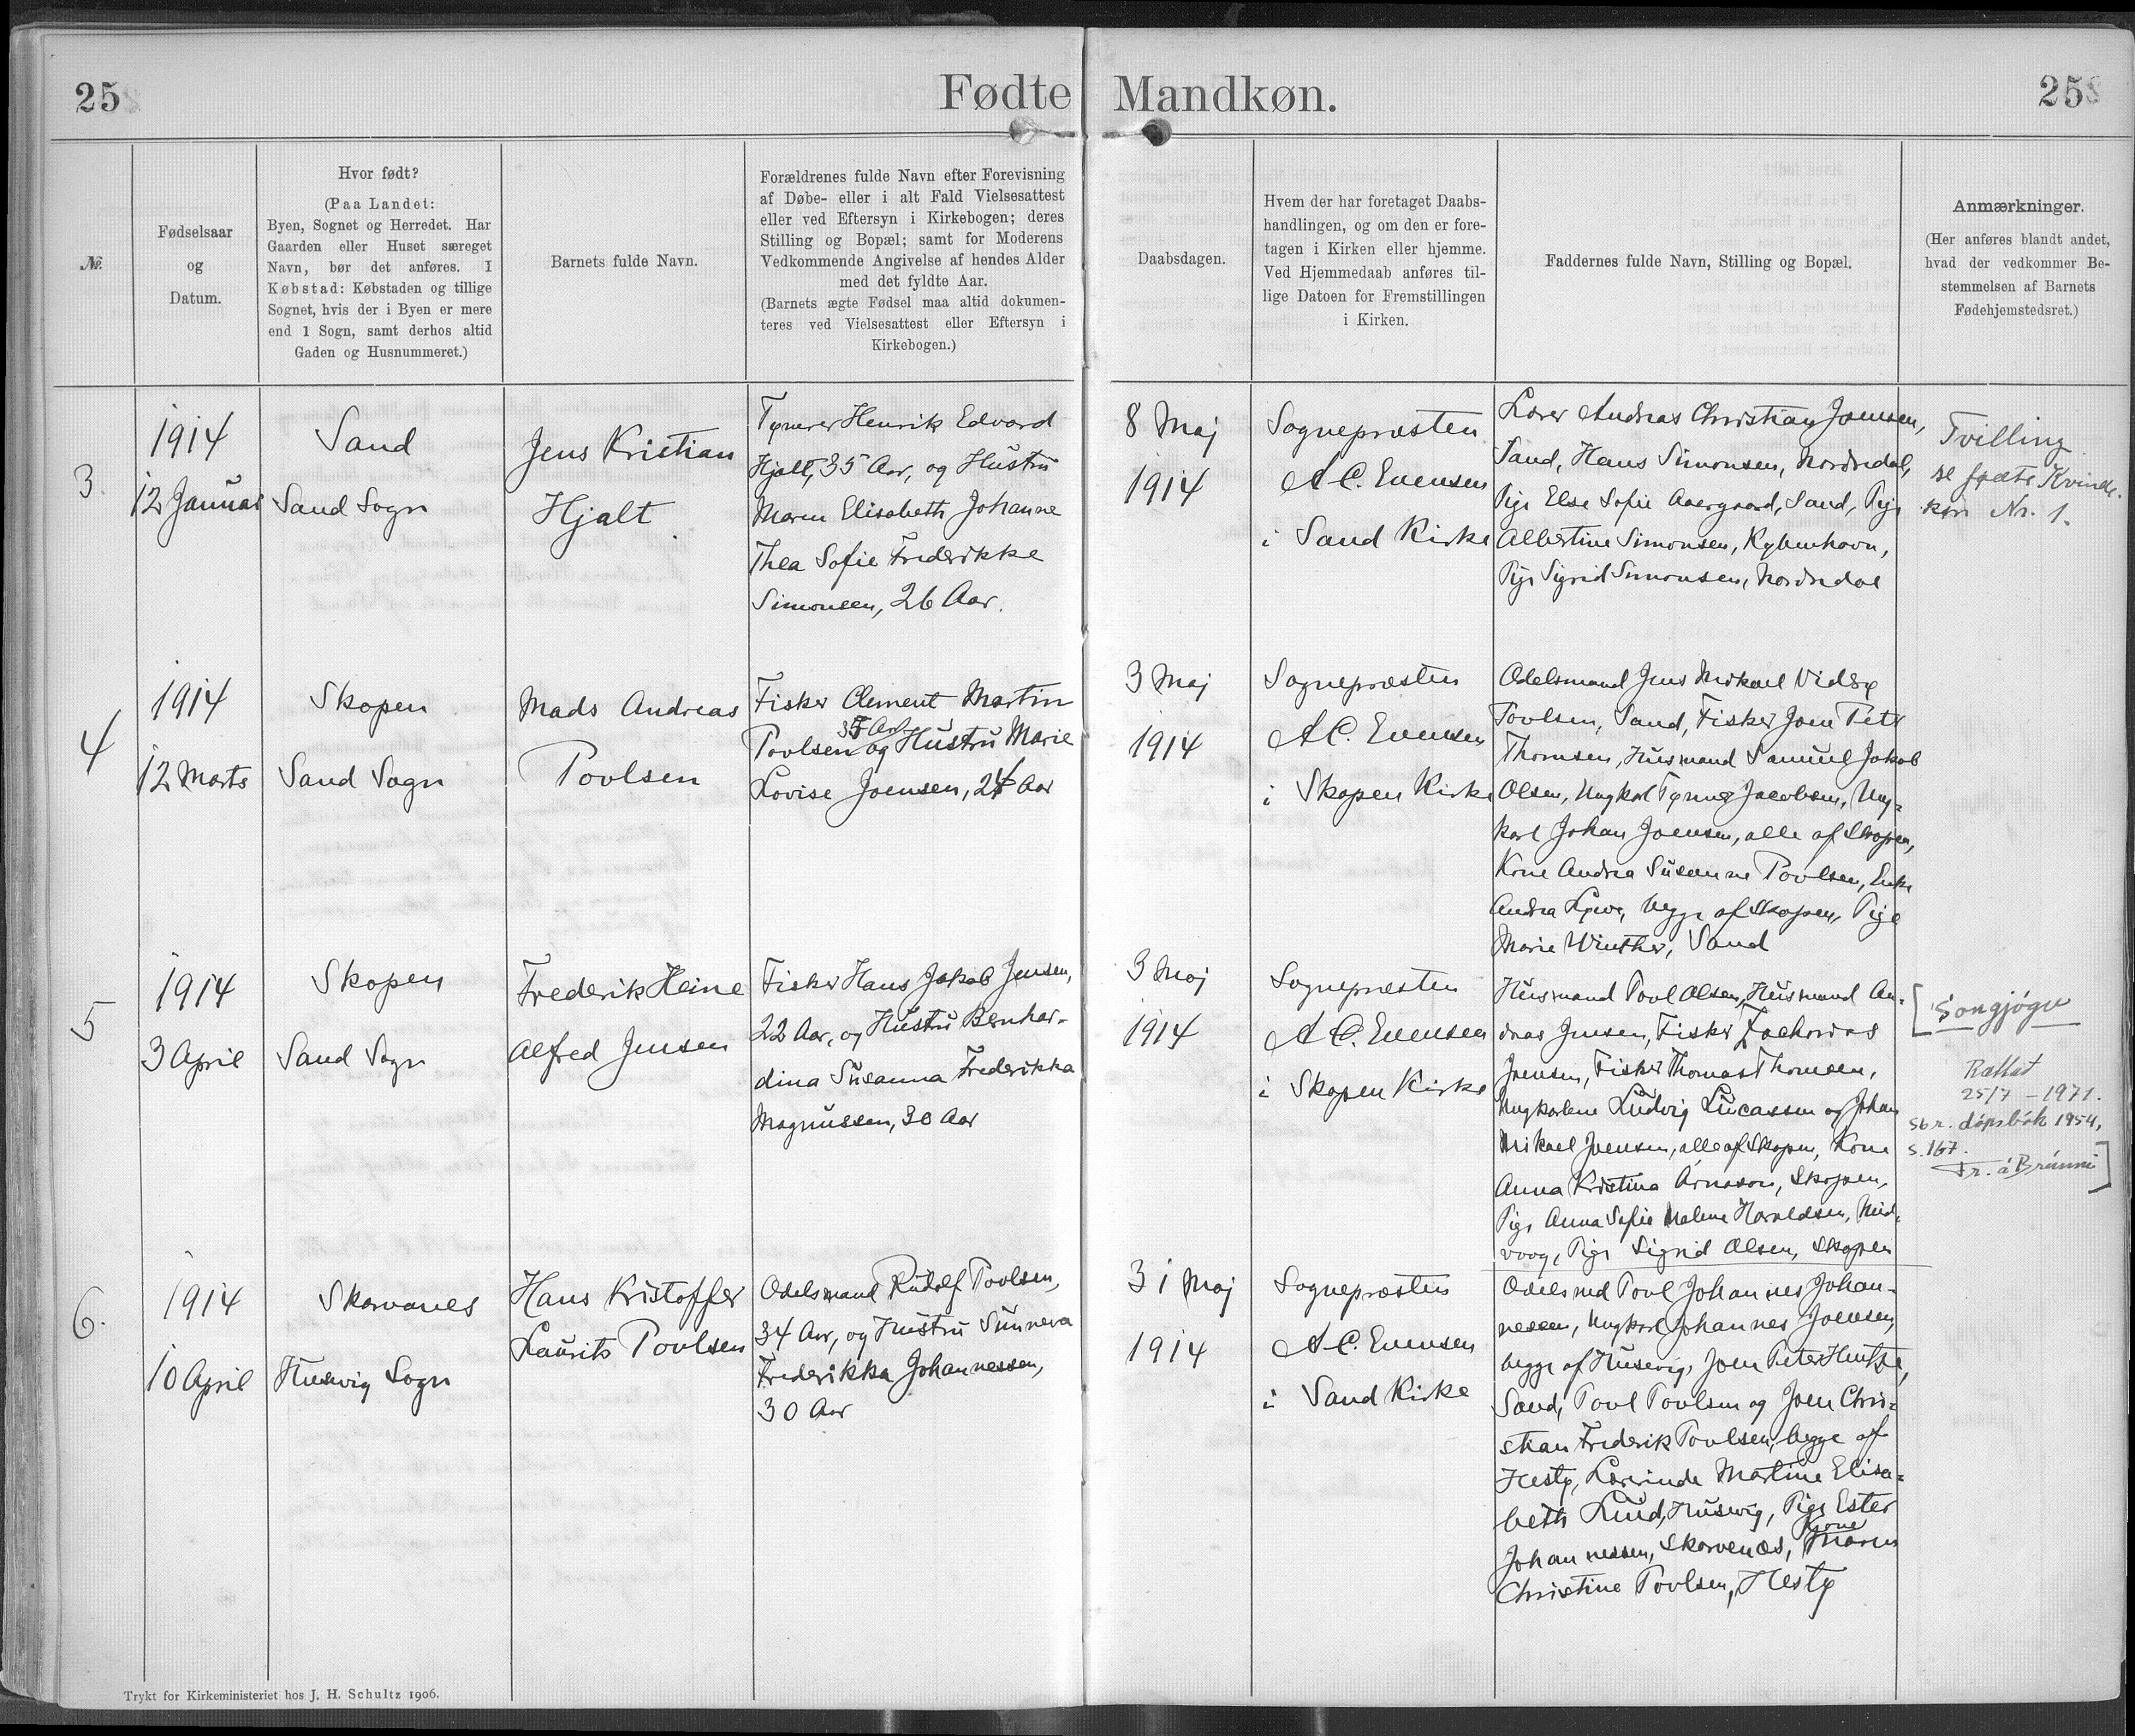 25
Fødte Mandkøn.
25
№
Fødselsaar
og
Datum.
Hvor født?
(Paa Landet:
Byen, Sognet og Herredet. Har
Gaarden eller Huset særeget
Navn, bør det anføres. I
Købstad: Købstaden og tillige
Sognet, hvis der i Byen er mere
end 1 Sogn, samt derhos altid
Gaden og Husnummeret.)
Barnets fulde Navn.
Forældrenes fulde Navn efter Forevisning
af Døbe- eller i alt Fald Vielsesattest
eller ved Eftersyn i Kirkebogen; deres
Stilling og Bopæl; samt for Moderens
Vedkommende Angivelse af hendes Alder
med det fyldte Aar.
(Barnets ægte Fødsel maa altid dokumen-
teres ved Vielsesattest eller Eftersyn i
Kirkebogen.)
Daabsdagen.
Hvem der har foretaget Daabs-
handlingen, og om den er fore-
tagen i Kirken eller hjemme.
Ved Hjemmedaab anføres til-
lige Datoen for Fremstillingen
i Kirken.
Faddernes fulde Navn, Stilling og Bopæl.
Anmærkninger.
(Her anføres blandt andet,
hvad der vedkommer Be-
stemmelsen af Barnets
Fødehjemstedsret.)
3.
1914
12 Januar
Sand
Sand Sogn
Jens Kristian
Hjalt
Tømrer Henrik Edvard
Hjalt, 35 Aar, og Hustru
Maren Elisabeth Johanne
Thea Sofie Frederikke
Simonsen, 26 Aar.
8 Maj
1914
Sognepræsten
A C. Evensen
i Sand Kirke
Lærer Andreas Christian Joensen,
Sand, Hans Simonsen, Nordredal,
Pige Else Sofie Aaergaard, Sand, Pige
Albertine Simonsen, Kybenhavn,
Pige Sigrid Simonsen, Nordredal
Tvilling
se fødte Kvinde-
køn Nr. 1.
4
1914
12 Marts
Skopen
Sand Sogn
Mads Andreas
Povlsen
Fisker Clement Martin
35 Aar
Povlsen og Hustru Marie
Lovise Joensen, 24 Aar
3 Maj
1914
Sognepræsten
A C. Evensen
i Skopen Kirke
Odelsmand Jens Mikael Viderø
Povlsen, Sand, Fisker Joen Petr
Thomsen, Husmand Samuel Jakob
Olsen, Ungkarl Jacobsen, Ung-
karl Johan Joensen, alle af Skopen,
Kone Andrea Susanne Povlsen, Enke
Andrea begge af Skopen, Pige
Marie Winther, Sand
5
1914
3 April
Skopen
Sand Sogn
Frederik Heine
Alfred Jensen
Fisker Hans Jakob Jensen,
22 Aar, og Hustru Bernhar-
dina Susanna Frederikka
Magnussen, 30 Aar
3 Maj
1914
Sognepræsten
A C. Evensen
i Skopen Kirke
Husmand Povl Olsen, Husmand An-
dreas Jensen, Fisker Zacharias
Joensen, Fisker Thomas Thomsen,
Ungkarlene Ludvig Lucassen og Johan
Mikael Joensen, alle af Skopen, Kone
Anna Kristina Arnason, Skopen,
Pige Anna Sofie Malene Haraldsen, Mid-
voog, Pige Sigrid Olsen, Skopen
[Songjógv
Rættað
25/7 - 1971.
sbr. dópsbók 1954,
s. 167.
Fr. á Brúnni]
6.
1914
10 April
Skarvanes
Husevig Sogn
Hans Kristoffer
Laurits Povlsen
Odelsmand Rudolf Povlsen,
34 Aar, og Hustru Sunneva
Frederikka Johannessen,
30 Aar
31 Maj
1914
Sognepræsten
A C. Evensen
i Sand Kirke
Odelsmd Povl Johannes Johan-
nessen, Ungkarl Johannes Joensen,
begge af Husevig, Joen Peter
Sand, Povl Povlsen og Joen Chri-
stian Frederik Povlsen, begge af
Hestø, Lærerinde Martine Elisa-
beth Lund, Husevig, Pige Ester
Kone
Johannessen, Skarvenæs, Maren
Christine Povlsen, Hestø
Trykt for Kirkeministeriet hos J. H. Schultz 1906.